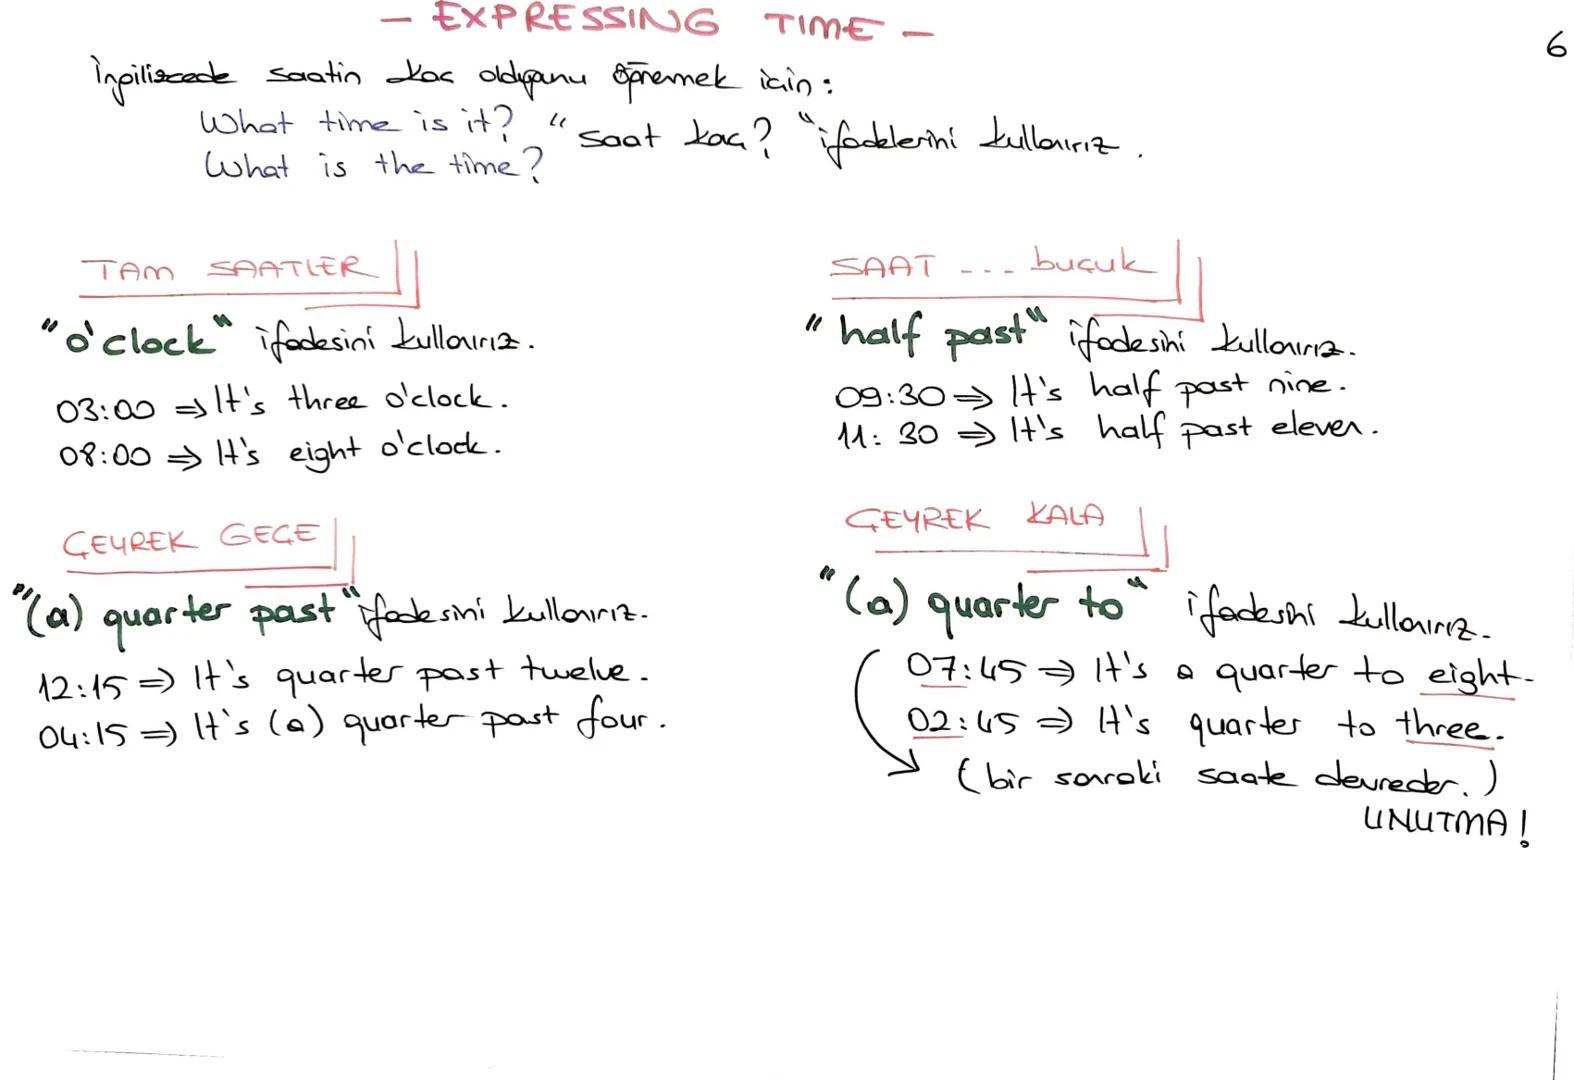 - EXPRESSING TIME -
6
İngilizcede saatin kaç olduğunu öğrenmek için:
What time is it? "saat kaç?" ifadelerini kullanırız.
What is the time?
TAM SAATLER
"o'clock" ifadesini kullanırız.
03:00 ⇒ It's three o'clock.
08:00 ⇒ It's eight o'clock.
SAAT ... buçuk
"half past" ifadesini kullanırız.
09:30 ⇒ It's half past nine.
11:30 ⇒ It's half past eleven.
ÇEYREK GEÇE
"(a) quarter past" ifadesini kullanırız.
12:15 ⇒ It's quarter past twelve.
04:15 ⇒ It's (a) quarter past four.
ÇEYREK KALA
"(a) quarter to" ifadesini kullanırız.
07:45 ⇒ It's a quarter to eight.
02:45 ⇒ It's quarter to three.
(bir sonraki saate devreder.)
UNUTMA!